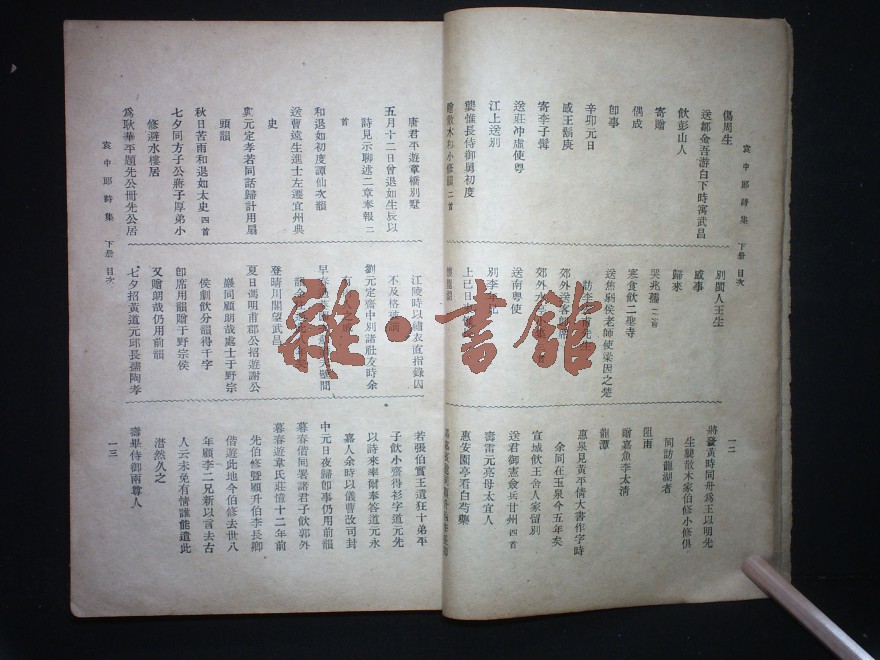 袁中郎詩集 下冊 目次
傷周生
送鄒金吾游白下時寓武昌
飲彭山人
寄贈
偶成
卽事
辛卯元日
戚王鬍庚
寄李子髯
送莊冲虛使粤
江上送別
龔惟長侍御舅初度
贈散木和小修韻 二首
別閩人王生
感事
歸來
哭兆孺 二首
寒食飲二聖寺
送焦弱侯老師使梁因之楚
訪李
郊外送客
郊外水
送南粤使
別李
上巳日
一二
將發黃時同舟爲王以明先
生龔散木家伯修小修俱
同訪龍湖者
阻南
贈嘉魚李太淸
龍潭
惠泉見黃平倩大書作字時
余同在玉泉今五年矣
宣城飲王舍人家留別
送君御憲僉兵甘州 四首
壽雷元亮母太宜人
惠安園亭看白芍藥
唐君平遊章橋別墅
五月十二日曾退如生長以
詩見示聊述二章奉報 二
首
和退如初度譚仙次韻
送曹遠生進士左遷宜州典
史
與元定孝若同話歸計用扇
頭韻
秋日苦雨和退如太史 四首
七夕同方子公蔣子厚弟小
修避水樓居
爲耿華平題先公冊先公居
江陵時以繡衣直指錄囚
不及格被
劉元定齋中別諸社友時余
有
早春
登晴川閣望武昌
夏日馮明甫郡公招遊謝公
巖同顧朗哉處士于野宗
侯劇飲分韻得千字
卽席用韻贈于野宗侯
又贈朗哉仍用前韻
七夕招黃道元邱長孺陶孝
若張伯實王遺狂十弟平
子飲小齋得衫字道元先
以詩來率爾奉答道元永
嘉人余時以儀曹改司封
中元日夜歸卽事仍用前韻
暮春偕同署諸君子飲郭外
暮春遊韋氏莊憶十二年前
先伯修暨顧升伯李長卿
借遊此地今伯修去世八
年顧李二兄新以言去古
人云未免有情誰能遣此
潸然久之
壽畢侍御南尊人
袁中郎詩集 下冊 目次
一三
雜·書館